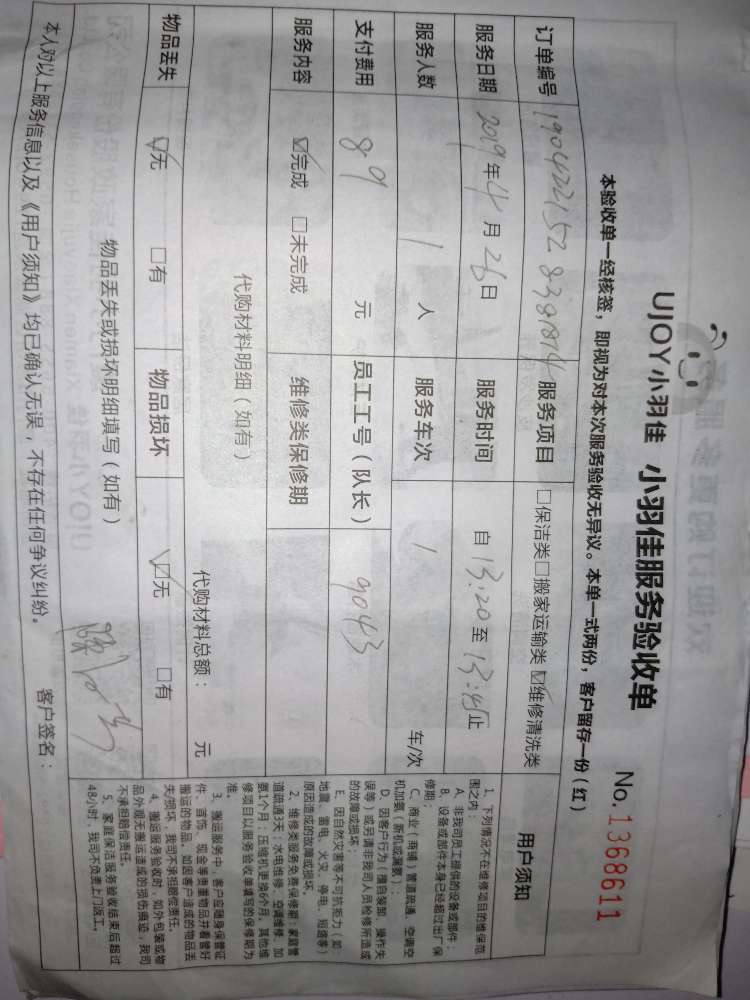 UJOY小羽佳 小羽佳服务验收单
No.1368611
本验收单一经核签，即视为对本次服务验收无异议。本单一式两份，客户留存一份（红）
订单编号 服务项目 □保洁类□搬家运输类☑维修清洗类
服务日期 2019年4月26日 服务时间 自13:20至13:45止
服务人数 1人 服务车次 1 车/次
支付费用 89 元 员工工号（队长） 9043
服务内容 ☑完成 □未完成 维修类保修期
代购材料明细（如有）
代购材料总额： 元
物品丢失 ☑无 □有 物品损坏 ☑无 □有
物品丢失或损坏明细填写（如有）
本人对以上服务信息以及《用户须知》均已确认无误，不存在任何争议纠纷。 客户签名：
用户须知
1、下列情况不在维修项目的维保范
围之内：
A、非我司员工提供的设备或部件；
B、设备或部件本身已经超过出厂保
修期；
C、商业（商铺）管道疏通、空调空
机加氨（新机或漏氨）；
D、因客户行为（擅自装卸、操作失
误等）或另请非我司人员检修所造成
的故障或损坏；
E、因自然灾害等不可抗拒力（如：
地震、雷电、火灾、停电、短路等）
原因造成的故障或损坏。
2、维修类服务免费保修期：家庭管
道疏通3天；水电维修、空调维修、加
氨1个月；压缩机更换6个月。其他维
修项目以服务验收单填写的保修期为
准。
3、搬运服务中，客户应随身保管证
件、首饰、现金等贵重物品并看管好
搬运的物品。如因客户造成的物品丢
失/损坏，我司不承担赔偿责任。
4、搬运服务验收时，如外包装或物
品外观无搬运造成的损伤痕迹，我司
不承担赔偿责任。
5、家庭保洁服务验收结束后超过
48小时，我司不负责上门返工。